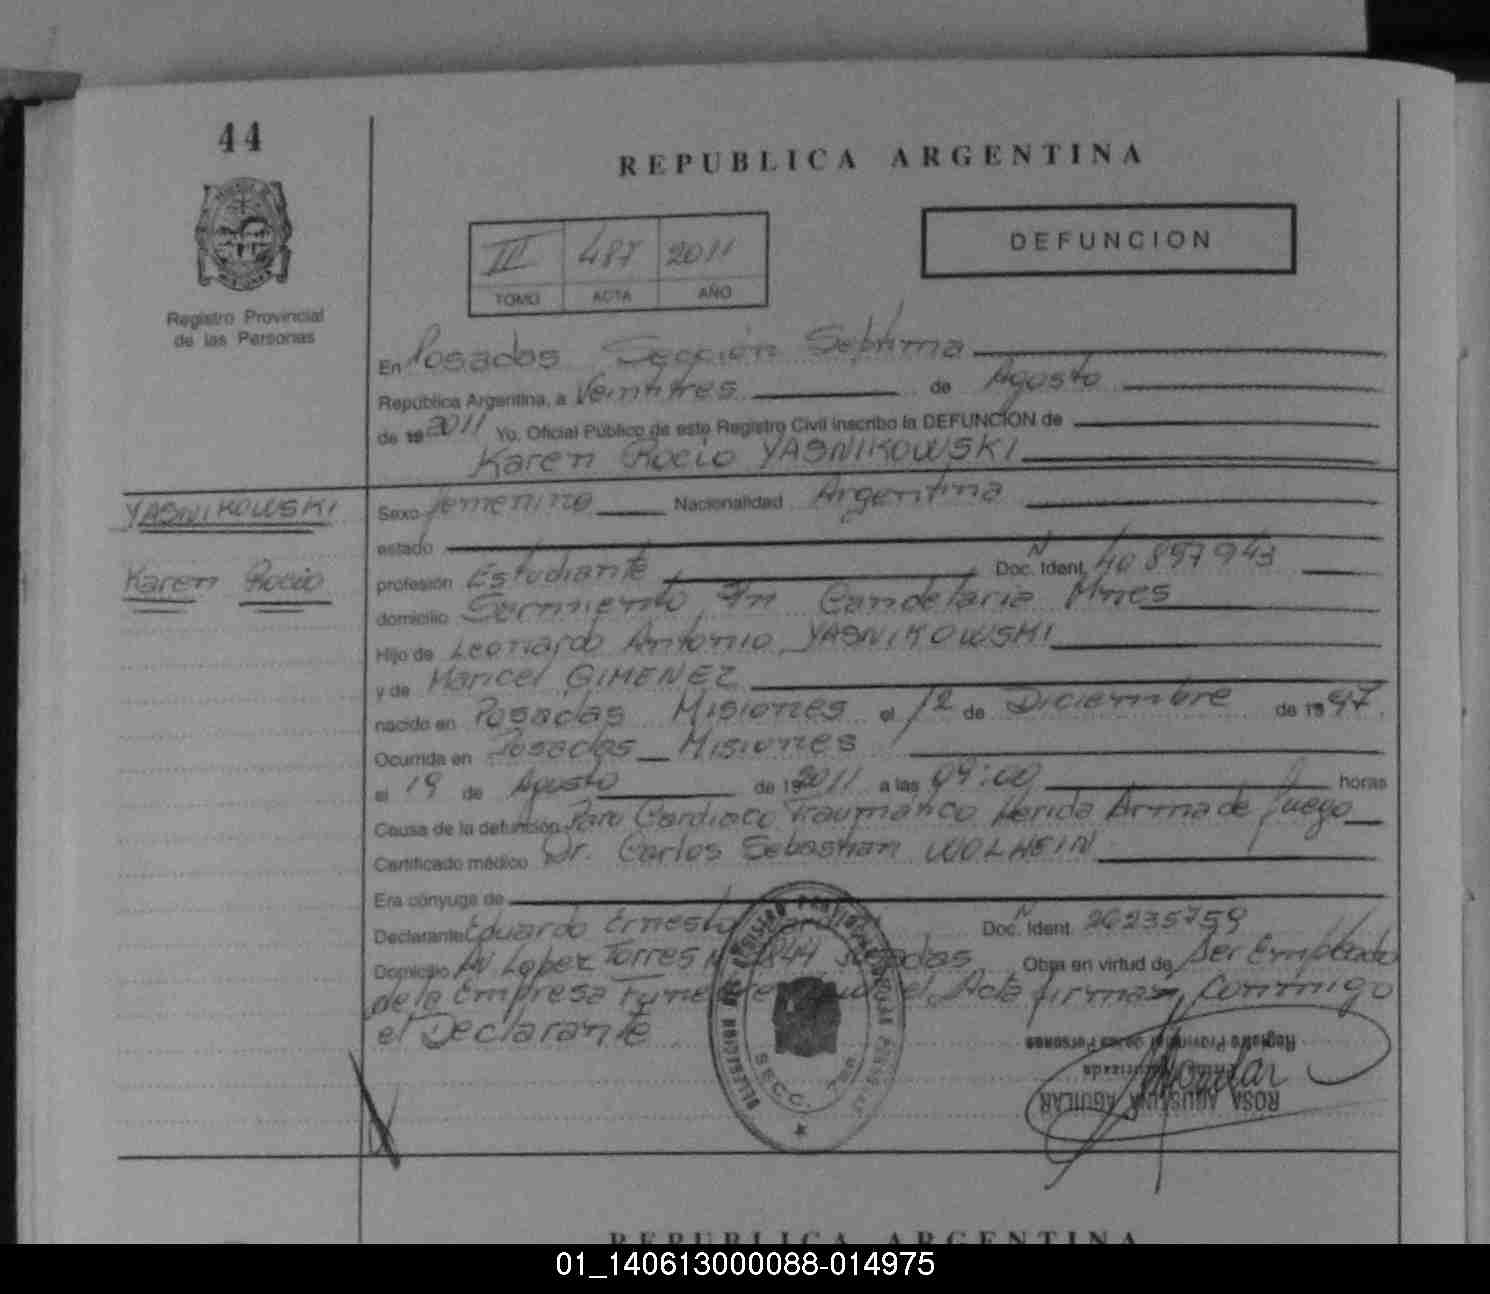 44
REPUBLICA ARGENTINA
III 487 2011
TOMO ACTA AÑO
DEFUNCION
Registro Provincial
de las Personas
En Posadas Sección Septima
República Argentina, a Veintitres de Agosto
de 19 2011 Yo, Oficial Público de este Registro Civil inscribo la DEFUNCION de
Karen Rocio YASNIKOWSKI
YASNIKOWSKI
Karen Rocio
Sexo femenino Nacionalidad Argentina
estado
profesión Estudiante Doc. Ident. Nº 40 897 943
domicilio Sarmiento s/n Candelaria Mnes
Hijo de Leonardo Antonio YASNIKOWSKI
y de Maricel GIMENEZ
nacido en Posadas Misiones el 12 de Diciembre de 19 97
Ocurrida en Posadas Misiones
el 19 de Agosto de 19 2011 a las 09:00 horas
Causa de la defunción Paro Cardiaco Traumatico Herida Arma de fuego
Certificado médico Dr. Carlos Sebastian WOLHEIN
Era cónyuge de
Declarante Eduardo Ernesto Doc. Ident. Nº 26235759
Domicilio Av Lopez Torres Nº 1844 Posadas Obra en virtud de Ser Empleado
de la Empresa el Acta firman Conmigo
el Declarante
SECC. 7
Registro Provincial de las Personas
Firma Autorizada
ROSA AGUSTINA AGUILAR
REPUBLICA ARGENTINA
01_140613000088-014975